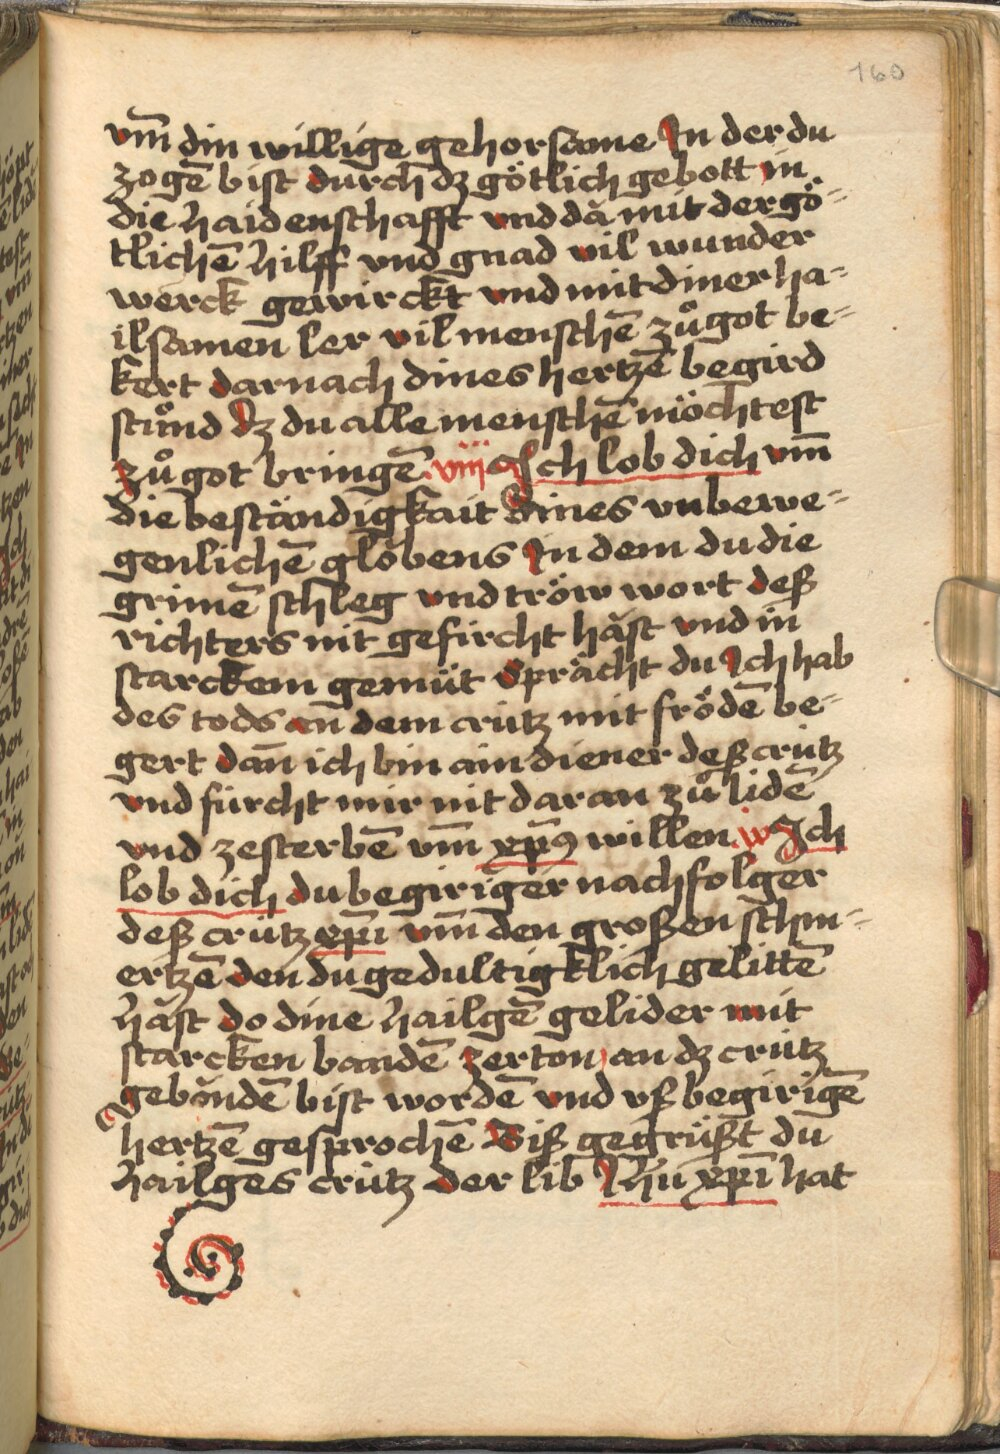 160
vm̄ din willige gehorsame In der du
zogē bist durch dz götlich gebott in
die haidenschafft vnd dā mit der gö-
tlichē hilff vnd gnad vil wunder
werck gewirckt vnd mit diner ha-
ilsamen ler vil menschē zůgot be-
kert darnach dines hertzē begird
stůnd dz du alle menschē möchtest
zůgot bringē. viij Ich lob dich vm̄
die beständigkait dines vnbewe-
genlichē globens In dem du die
grimē schleg vnd tröw wort deß
richters nit gefürcht häst vnd in
starckem gemüt sprächt du Ich hab
des tods an dem crütz mit frödē be-
gert dañ ich bin ain diener deß crütz
vnd fürcht mir nit daran zů lidē
vnd zesterbē vm̄ xp̄ꝯ willen. ix Ich
lob dich du begiriger nachfolger
deß crütz xp̄i vm̄ den großen schm-
ertzē den du gedultigklich gelittē
häst do dine hailgē gelider mit
starcken bandē zerton an dz crütz
gebūndē bist wordē vnd vß begirigē
hertzē gesprochē Biß gegrüßt du
hailges crütz der lib Ihū xp̄i hat